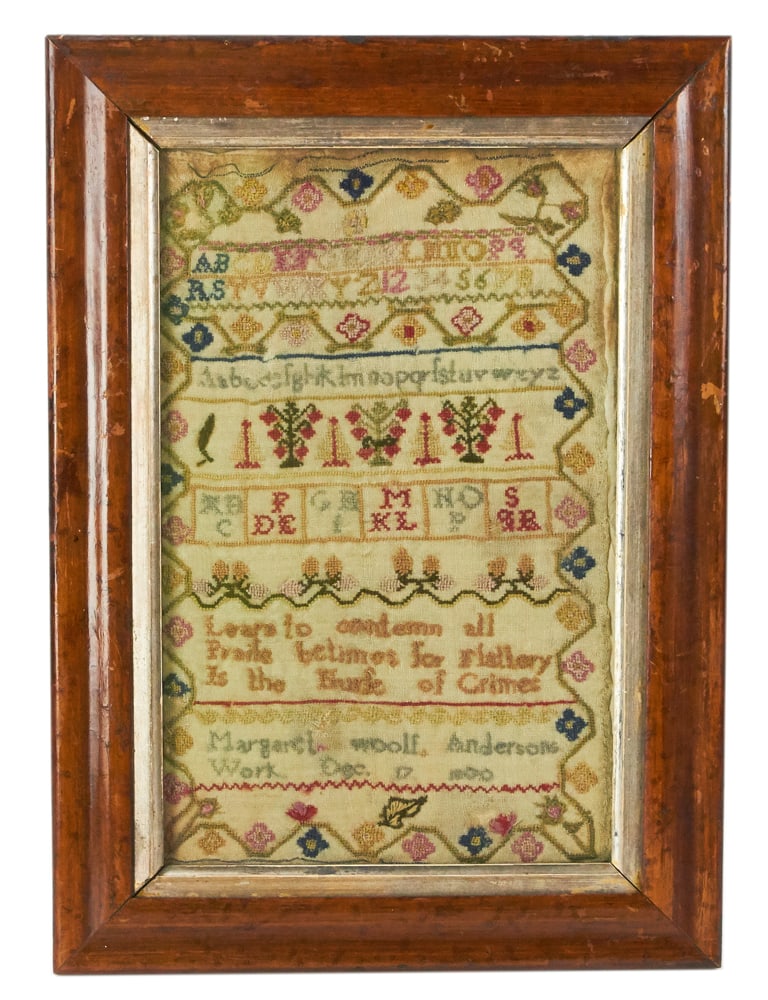 AB LMNOPq
RSTVWXYZ123456
Aabcdefghiklmnopqrſstuvwxyz
AB F GH M NO S
C DE I KL P qR
Learn to contemn all
Praiſe betimes for Flattery
Is the Nurſe of Crimes
Margaret woolf Andersons
Work Dec. 17